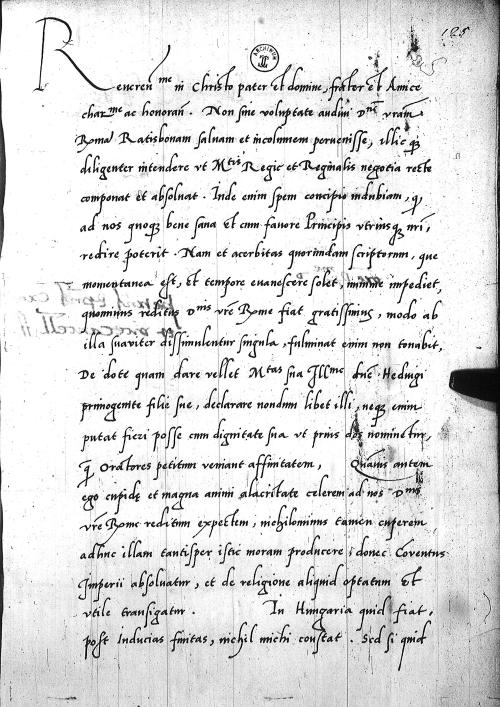 125
Reveren^me in Christo pater et domine, frater et Amice
char^me ac honoran. Non sine voluptate audivi D^nem vram
Roma Ratisbonam salvam et incolumem pervenisse, illic q3
diligenter intendere vt M^tis Regie et Reginalis negotia recte
componat et absoluat. Inde enim spem concipio indubiam, q
ad nos quoq3 bene sana et cum favore Principis vtriusq3 nri,
redire poterit. Nam et acerbitas quorundam scriptorum, que
momentanea est, et tempore evanescere solet, minime impediet,
quominus reditus D^nis vre Rome fiat gratissimus, modo ab
illa suaviter dissimulentur singula, fulminat enim non tonabit,
De dote quam dare vellet M^tas sua Ill^me dne Heduigi
primogenite filie sue, declarare nondum libet illi, neq3 enim
putat fieri posse cum dignitate sua vt prius dos nominetur,
q Oratores petitum veniant affinitatem, Quamvis autem
ego cupide et magna animi alacritate celerem ad nos D^nis
vre Rome reditum expectem, nichilominus tamen cuperem
adhuc illam tantisper istic moram producere donec Conventus
Imperii absoluatur, et de religione aliquid optatum et
vtile transigatur. In Hungaria quid fiat,
post Inducias finitas, nichil michi constat. Sed si quid